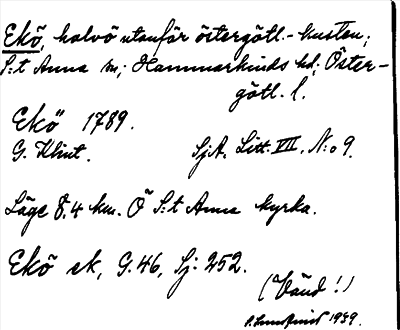 Ekö, halvö utanför östergötl.-kusten;
S:t Anna sn; Hammarkinds hd; Öster-
götl. l.
Ekö 1789.
G. Klint. SjA. Litt. VII, N:o 9.
Läge 8,4 km. Ö S:t Anna kyrka.
Ekö ek, G.46, Sj: 252.
(Vänd!)
1939.